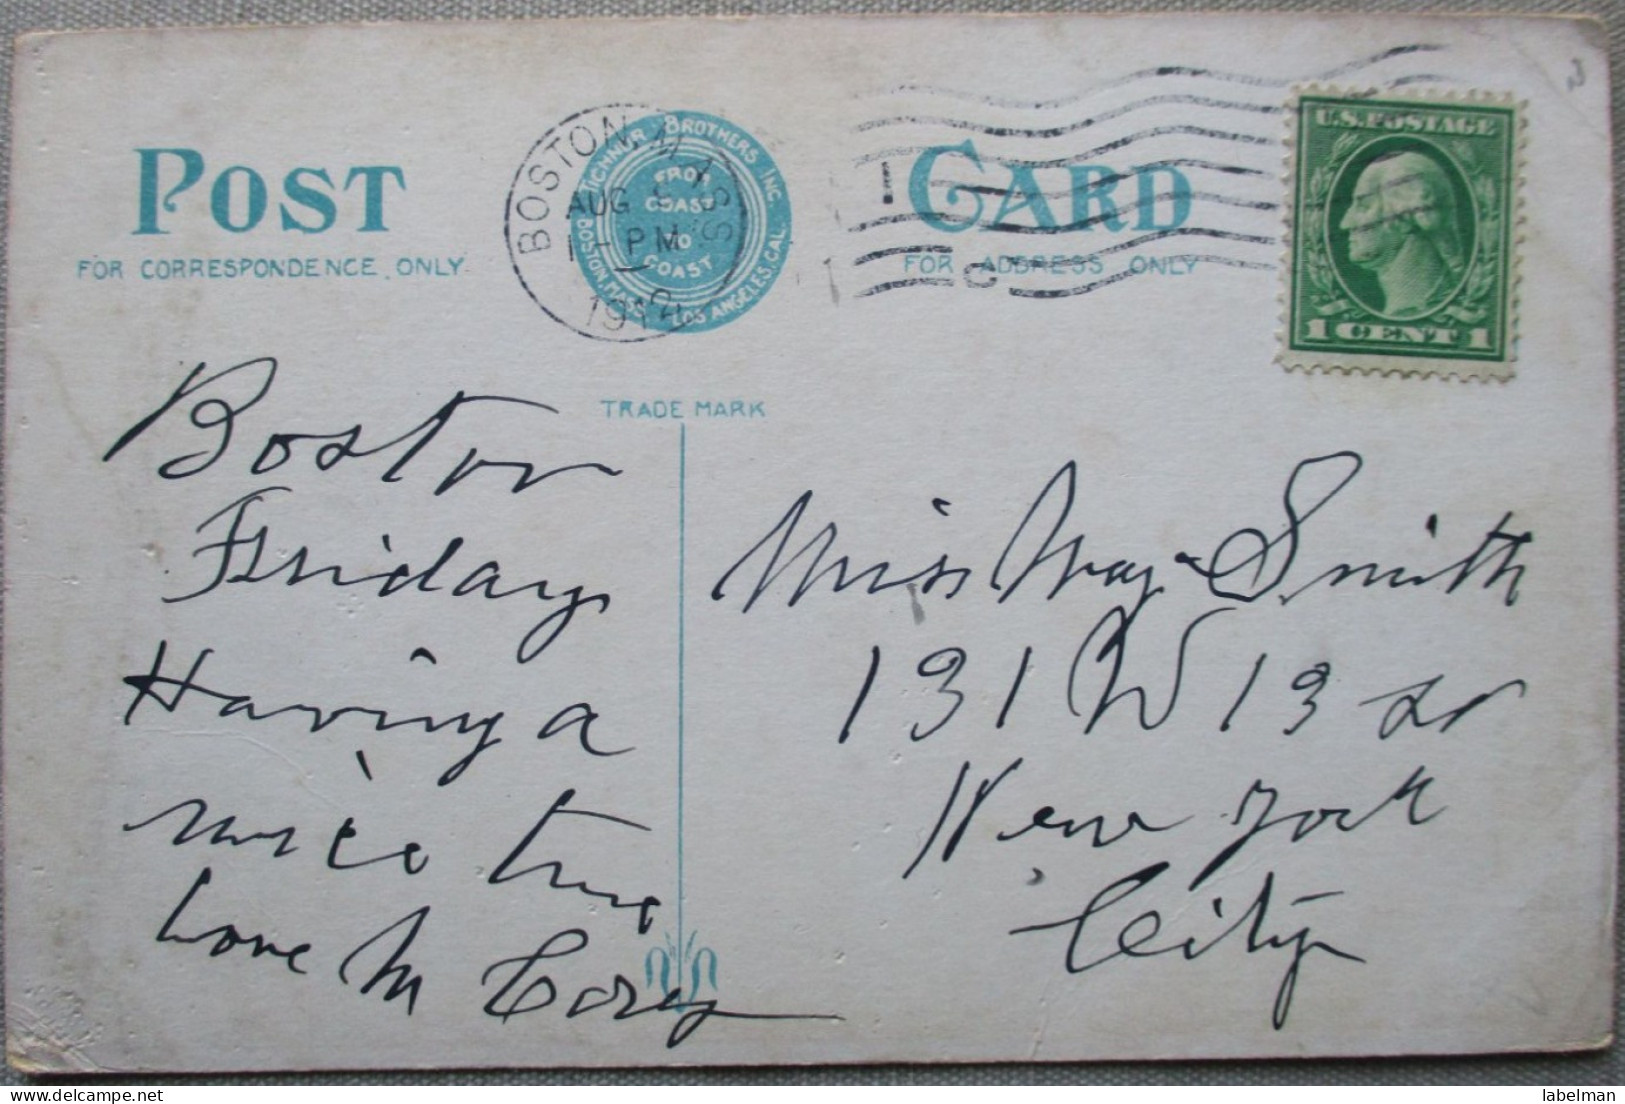 POST CARD
FOR CORRESPONDENCE ONLY
FOR ADDRESS ONLY
TICHNOR BROTHERS INC.
BOSTON, MASS. LOS ANGELES, CAL.
FROM
COAST
TO
COAST
TRADE MARK
BOSTON, MASS
AUG
1 - PM
1912
U.S. POSTAGE
1 CENT 1
Boston
Friday
Having a
nice trip
Love M Corey
Miss May Smith
131 W 13 St
New York
City
labelman delcampe.net